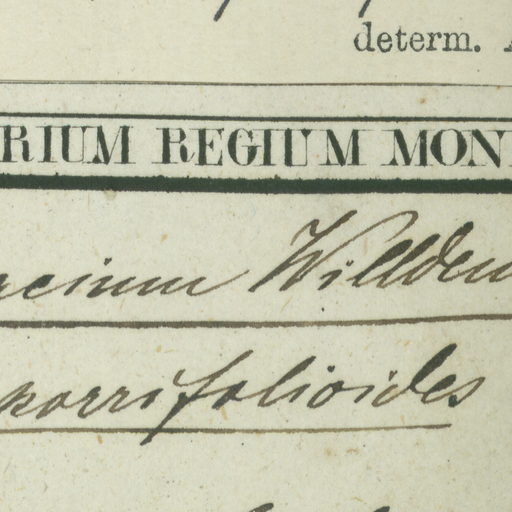 determ.
RIUM REGIUM MON
acium Willden
porrifolioides